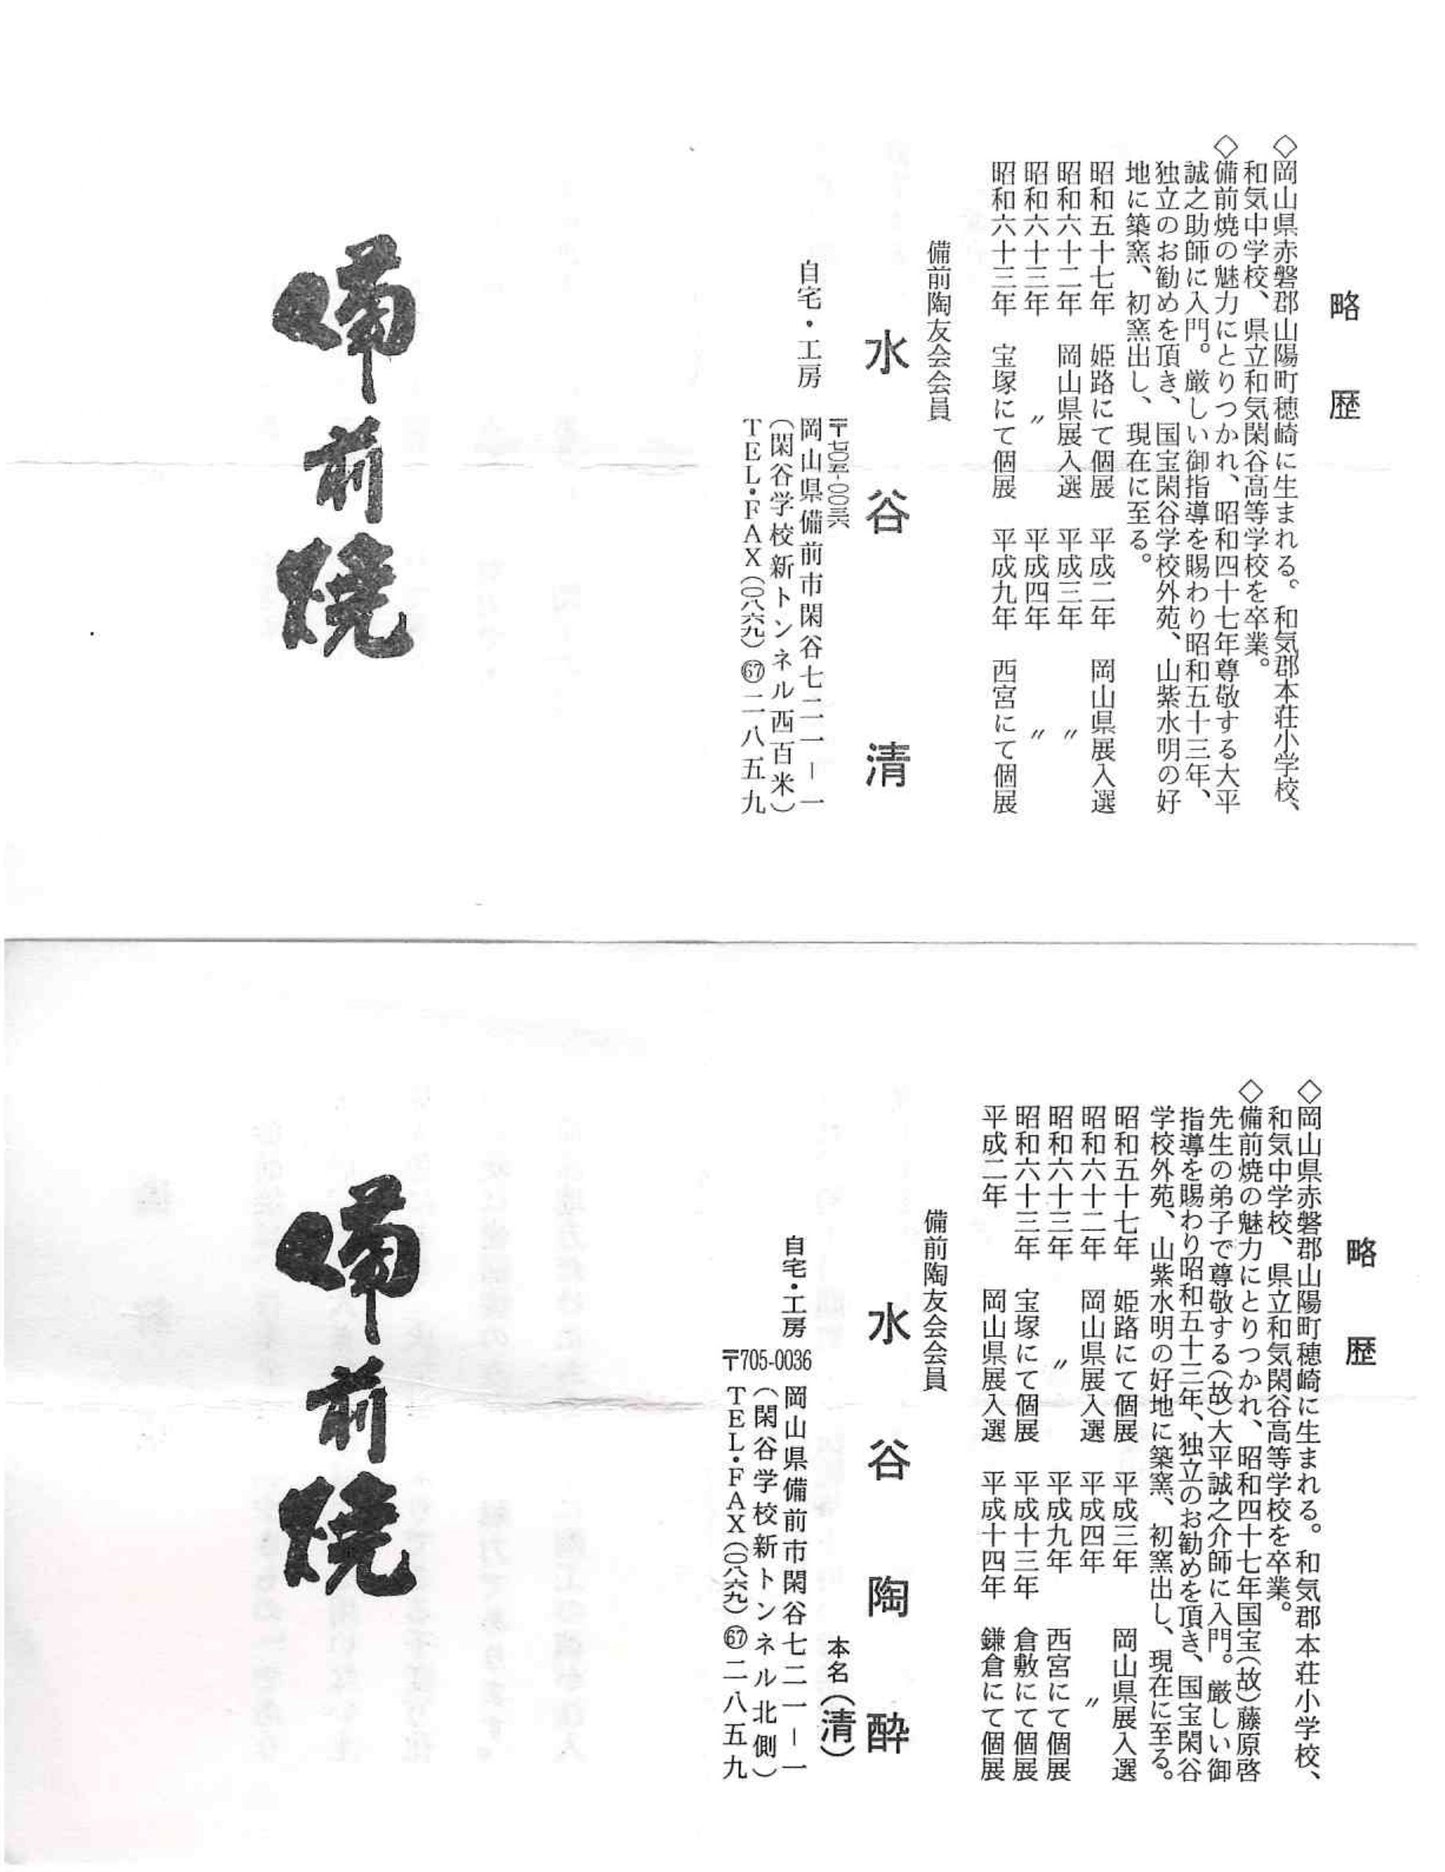 略歴
◇岡山県赤磐郡山陽町穂崎に生まれる。和気郡本荘小学校、
和気中学校、県立和気閑谷高等学校を卒業。
◇備前焼の魅力にとりつかれ、昭和四十七年尊敬する大平
誠之助師に入門。厳しい御指導を賜わり昭和五十三年、
独立のお勧めを頂き、国宝閑谷学校外苑、山紫水明の好
地に築窯、初窯出し、現在に至る。
昭和五十七年 姫路にて個展 平成二年 岡山県展入選
昭和六十二年 岡山県展入選 平成三年 〃
昭和六十三年 〃 平成四年 〃
昭和六十三年 宝塚にて個展 平成九年 西宮にて個展
備前陶友会会員
水谷清
自宅・工房
〒七〇五-〇〇三六
岡山県備前市閑谷七二一―一
(閑谷学校新トンネル西百米)
TEL・FAX(〇八六九)㊿二八五九
備前焼
略歴
◇岡山県赤磐郡山陽町穂崎に生まれる。和気郡本荘小学校、
和気中学校、県立和気閑谷高等学校を卒業。
◇備前焼の魅力にとりつかれ、昭和四十七年国宝(故)藤原啓
先生の弟子で尊敬する(故)大平誠之介師に入門。厳しい御
指導を賜わり昭和五十三年、独立のお勧めを頂き、国宝閑谷
学校外苑、山紫水明の好地に築窯、初窯出し、現在に至る。
昭和五十七年 姫路にて個展 平成三年 岡山県展入選
昭和六十二年 岡山県展入選 平成四年 〃
昭和六十三年 〃 平成九年 西宮にて個展
昭和六十三年 宝塚にて個展 平成十三年 倉敷にて個展
平成二年 岡山県展入選 平成十四年 鎌倉にて個展
備前陶友会会員
水谷陶酔
本名(清)
自宅・工房
〒705-0036
岡山県備前市閑谷七二一―一
(閑谷学校新トンネル北側)
TEL・FAX(〇八六九)67二八五九
備前焼